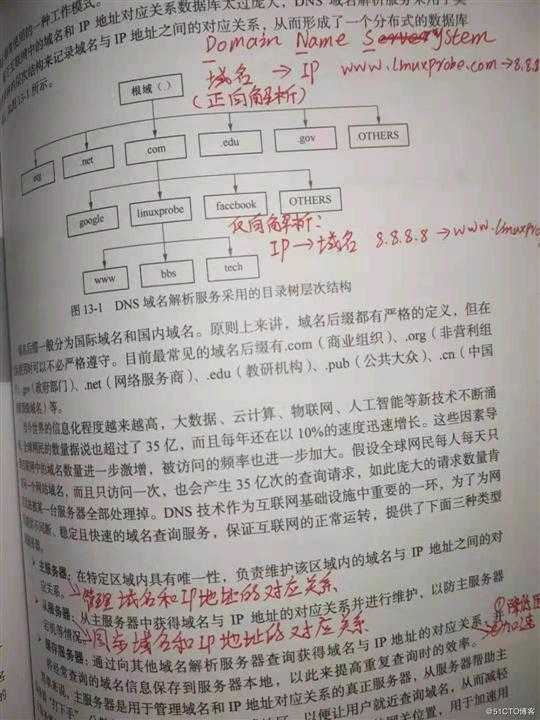 使用的一种工作模式。
联网中的域名和 IP 地址对应关系数据库太过庞大，DNS 域名解析服务采用了类
层次结构来记录域名与 IP 地址之间的对应关系，从而形成了一个分布式的数据库
13-1 所示。
Domain Name Server System
域名 → IP www.linuxprobe.com→8.8.8
(正向解析)
根域（.）
org .net .com .edu .gov OTHERS
google linuxprobe facebook OTHERS
反向解析：
IP→域名 8.8.8.8 →www.linuxpro
www bbs tech
图 13-1 DNS 域名解析服务采用的目录树层次结构
域名后缀一般分为国际域名和国内域名。原则上来讲，域名后缀都有严格的定义，但在
使用时可以不必严格遵守。目前最常见的域名后缀有.com（商业组织）、.org（非营利组
织）、.gov（政府部门）、.net（网络服务商）、.edu（教研机构）、.pub（公共大众）、.cn（中国
域名）等。
当今世界的信息化程度越来越高，大数据、云计算、物联网、人工智能等新技术不断涌
全球网民的数量据说也超过了 35 亿，而且每年还在以 10%的速度迅速增长。这些因素导
中的域名数量进一步激增，被访问的频率也进一步加大。假设全球网民每人每天只
一个网站域名，而且只访问一次，也会产生 35 亿次的查询请求，如此庞大的请求数量肯
某一台服务器全部处理掉。DNS 技术作为互联网基础设施中重要的一环，为了为网
不间断、稳定且快速的域名查询服务，保证互联网的正常运转，提供了下面三种类型
服务器。
主服务器：在特定区域内具有唯一性，负责维护该区域内的域名与 IP 地址之间的对
应关系。
管理域名和IP地址的对应关系
从服务器：从主服务器中获得域名与 IP 地址的对应关系并进行维护，以防主服务器
宕机等情况。
同步域名和IP地址的对应关系
缓存服务器：通过向其他域名解析服务器查询获得域名与 IP 地址的对应关系，并
将经常查询的域名信息保存到服务器本地，以此来提高重复查询时的效率。
加速
简单来说，主服务器是用于管理域名和 IP 地址对应关系的真正服务器，从服务器帮助主
以便让用户就近查询域名，从而减轻
位置，用于加速用
@51CTO博客